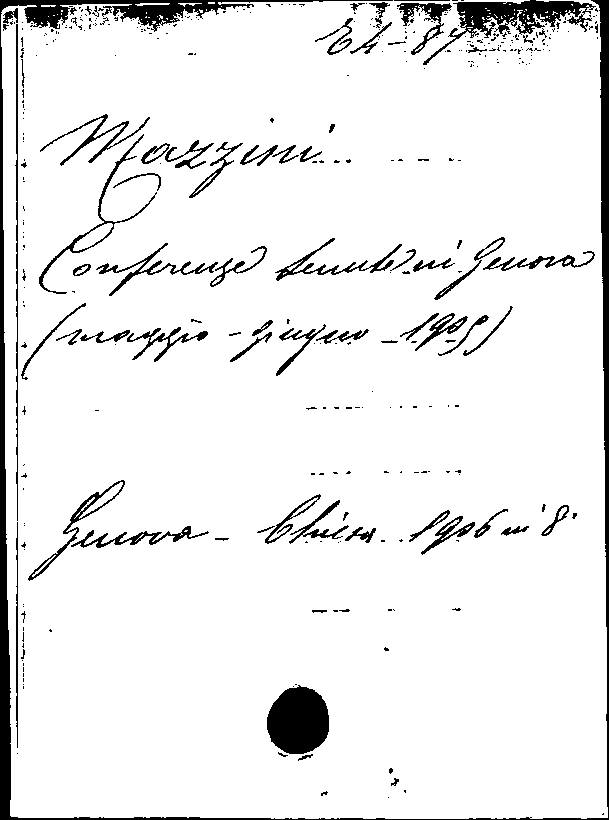 E4-87
Mazzini
Conferenze tenute in Genova
(maggio - giugno - 1905)
Genova - Chiesa 1906 in 8°